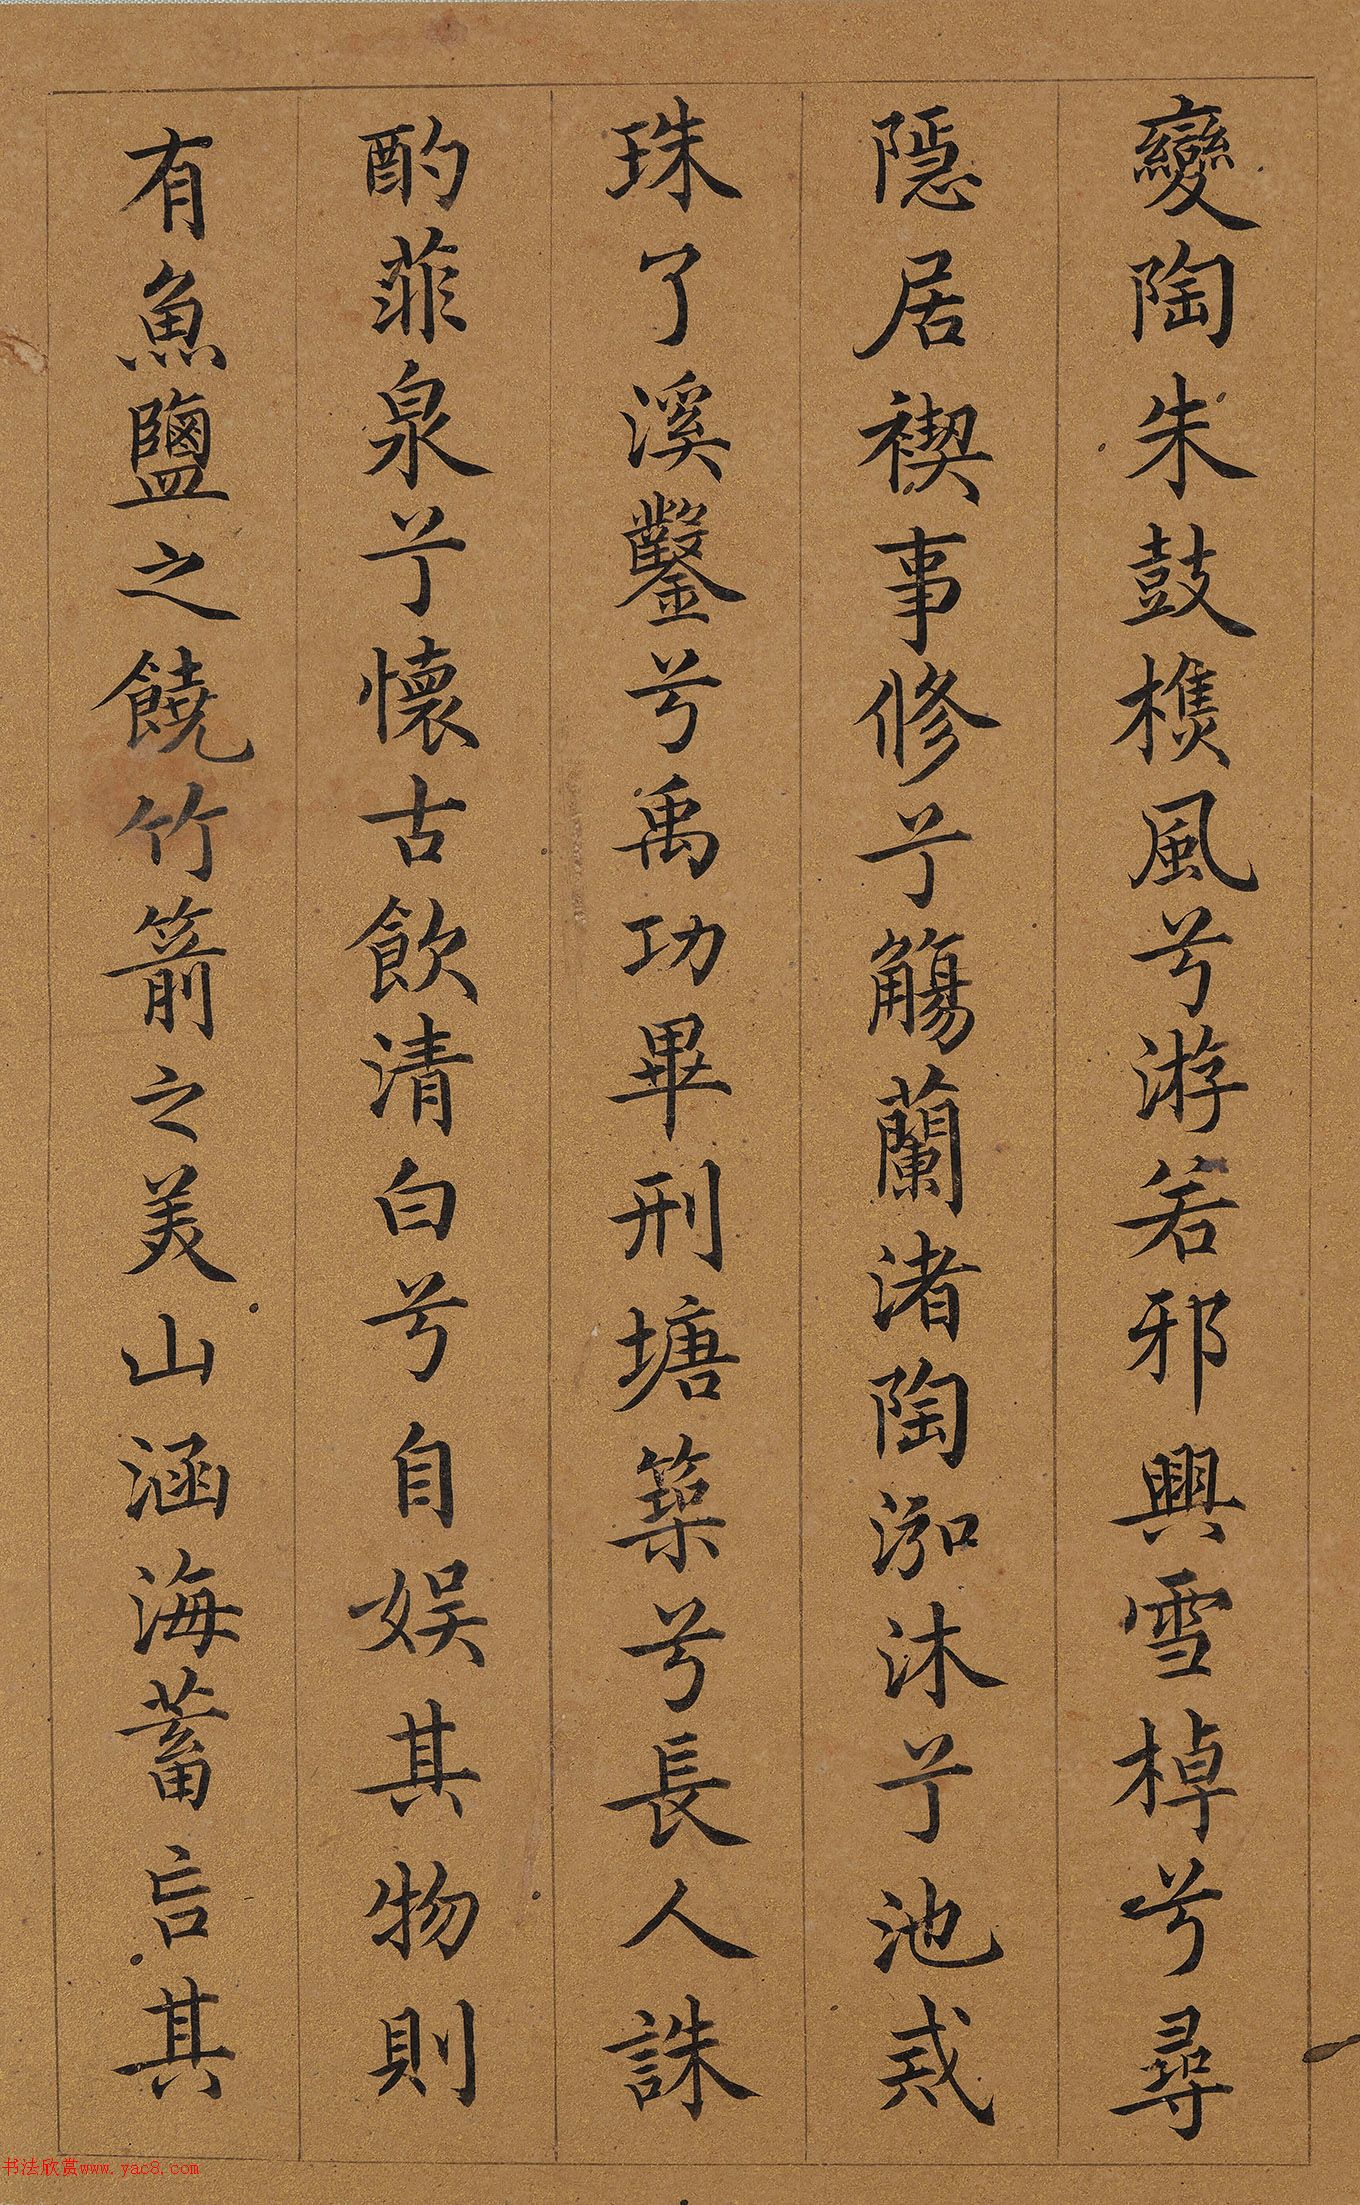 變陶朱鼓樵風兮游若邪興雪棹兮尋
隠居禊事修兮觴蘭渚陶泓沐兮池戒
珠了溪鑿兮禹功畢刑塘築兮長人誅
酌菲泉兮懷古飲清白兮自娱其物則
有魚鹽之饒竹箭之美山涵海蓄言其
书法欣赏www.yac8.com